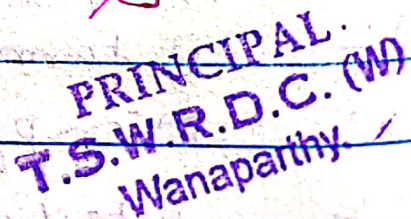 PRINCIPAL.
T.S.W.R.D.C. (W)
Wanaparthy.